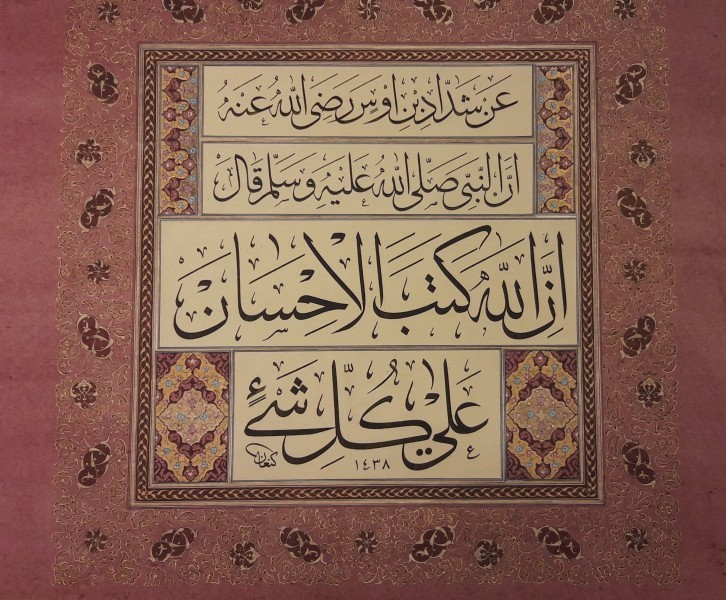 عَنْ شَدَّادِ بْنِ اَوْسٍ رَضِيَ اللهُ عَنْهُ
اَنَّ النَّبِيَّ صَلَّى اللهُ عَلَيْهِ وَسَلَّمَ قَالَ
اِنَّ اللهَ كَتَبَ الْاِحْسَانَ
عَلٰى كُلِّ شَيْءٍ
كنعان
١٤٣٨